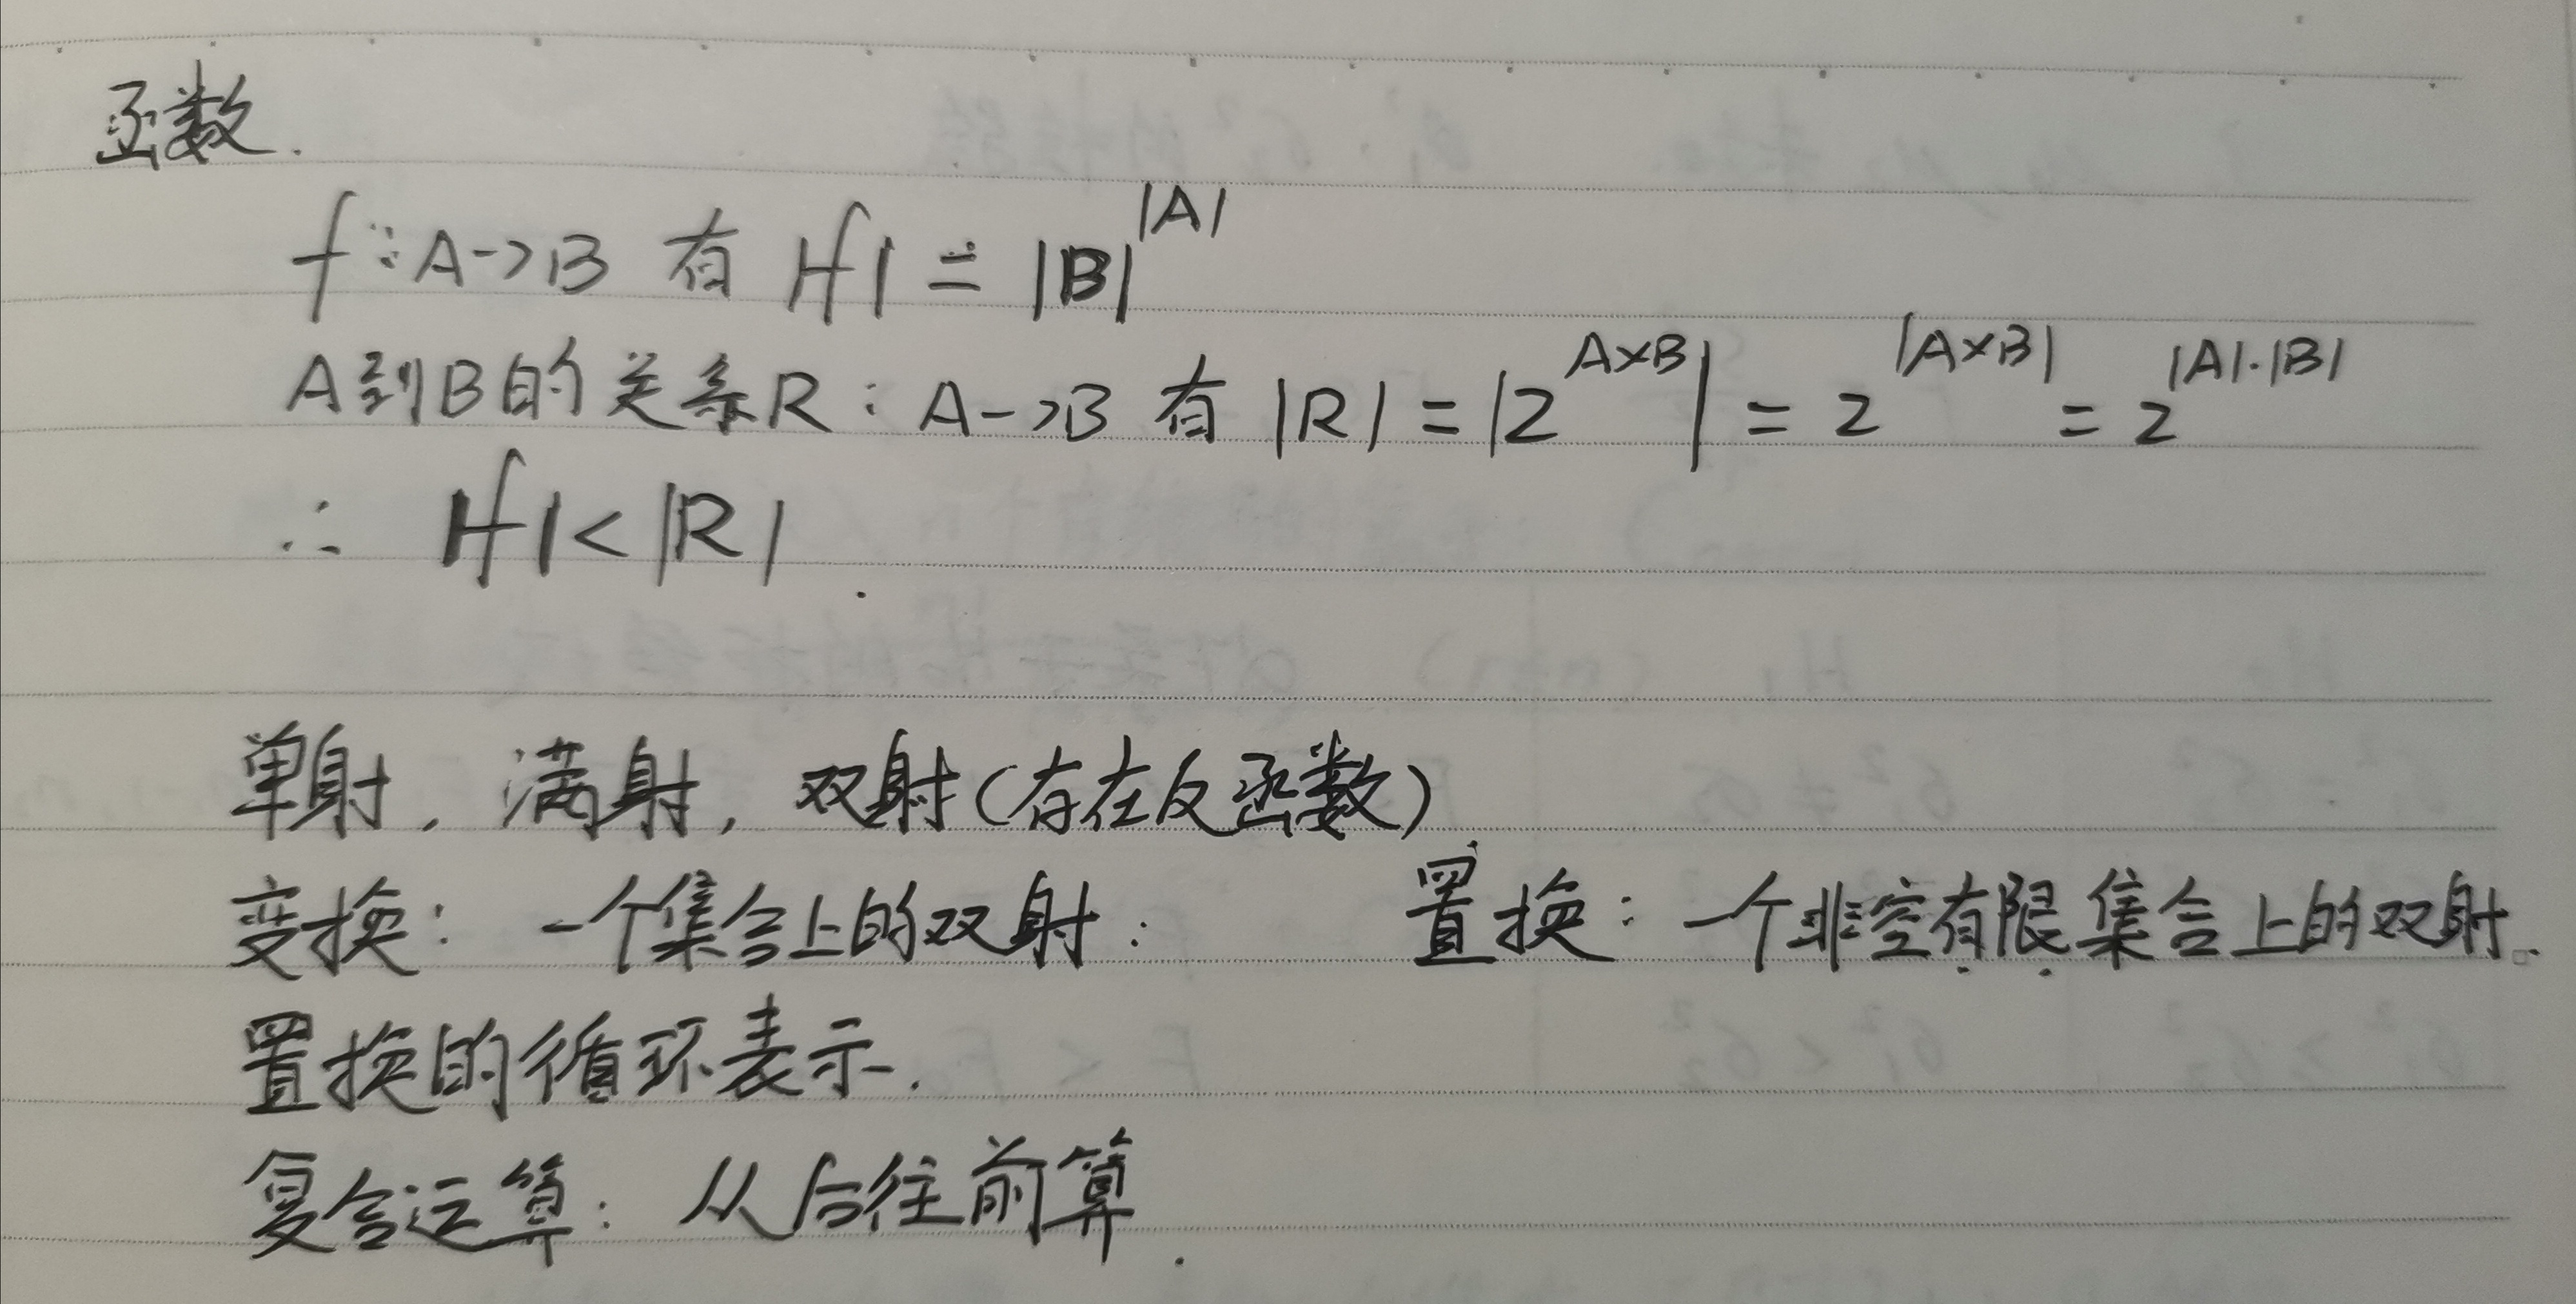 函数.
f：A->B 有 |f| = |B|^|A|
A到B的关系R：A->B 有 |R| = |2^(A×B)| = 2^|A×B| = 2^(|A|·|B|)
∴ |f| < |R|.
单射, 满射, 双射(存在反函数)
变换：一个集合上的双射. 置换：一个非空有限集合上的双射。
置换的循环表示.
复合运算：从后往前算.